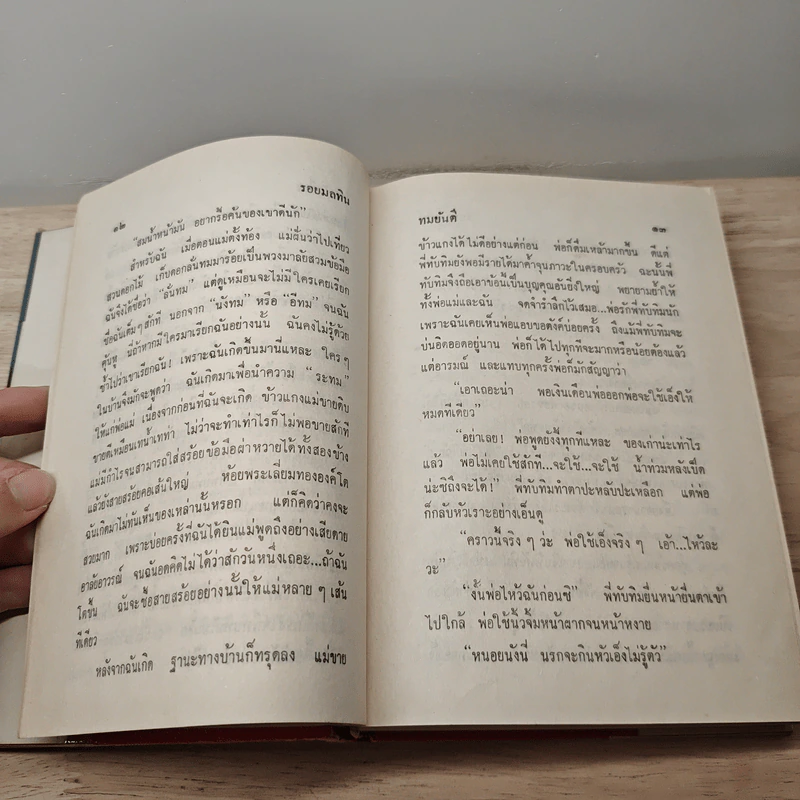 ๑๒
รอยมลทิน
“สมน้ำหน้ามัน อยากรื้อค้นของเขาดีนัก”
สำหรับฉัน เมื่อตอนแม่ตั้งท้อง แม่ฝันว่าไปเที่ยว
สวนดอกไม้ เก็บดอกลั่นทมมาร้อยเป็นพวงมาลัยสวมข้อมือ
ฉันจึงได้ชื่อว่า “ลั่นทม” แต่ดูเหมือนจะไม่มีใครเคยเรียก
ชื่อฉันเต็มๆ สักที นอกจาก “นังทม” หรือ “อีทม” จนฉัน
คุ้นหู นี่ถ้าหากมีใครมาเรียกฉันอย่างนั้น ฉันคงไม่รู้ด้วย
ซ้ำไปว่าเขาเรียกฉัน! เพราะฉันเกิดขึ้นมานี่แหละ ใครๆ
ในบ้านจึงมักจะพูดว่า ฉันเกิดมาเพื่อนำความ “ระทม”
ให้แก่พ่อแม่ เนื่องจากก่อนที่ฉันจะเกิด ข้าวแกงแม่ขายดิบ
ขายดีเหมือนเทน้ำเทท่า ไม่ว่าจะทำเท่าไรก็ไม่พอขายสักที
แม่มีกำไรจนสามารถใส่สร้อยข้อมือผ่าหวายได้ทั้งสองข้าง
แล้วยังสายสร้อยคอเส้นใหญ่ ห้อยพระเลี่ยมทององค์โต
ฉันเกิดมาไม่ทันเห็นของเหล่านั้นหรอก แต่ก็คิดว่าคงจะ
สวยมาก เพราะบ่อยครั้งที่ฉันได้ยินแม่พูดถึงอย่างเสียดาย
อาลัยอาวรณ์ จนฉันอดคิดไม่ได้ว่าสักวันหนึ่งเถอะ...ถ้าฉัน
โตขึ้น ฉันจะซื้อสายสร้อยอย่างนั้นให้แม่หลาย ๆ เส้น
ทีเดียว
หลังจากฉันเกิด ฐานะทางบ้านก็ทรุดลง แม่ขาย
ทมยันตี
๑๓
ข้าวแกงได้ไม่ดีอย่างแต่ก่อน พ่อก็ดื่มเหล้ามากขึ้น ดีแต่
พี่ทับทิมยังพอมีรายได้มาค้ำจุนภาวะในครอบครัว ฉะนั้นพี่
ทับทิมจึงถือเอาข้อนี้เป็นบุญคุณอันยิ่งใหญ่ พยายามย้ำให้
ทั้งพ่อแม่และฉัน จดจำรำลึกไว้เสมอ...พ่อรักพี่ทับทิมนัก
เพราะฉันเคยเห็นพ่อแอบขอตังค์บ่อยครั้ง ถึงแม้พี่ทับทิมจะ
บ่นอิดออดอยู่นาน พ่อก็ได้ไปทุกทีจะมากหรือน้อยต้องแล้ว
แต่อารมณ์ และแทบทุกครั้งพ่อก็มักสัญญาว่า
“เอาเถอะน่า พอเงินเดือนพ่อออกพ่อจะใช้เอ็งให้
หมดทีเดียว”
“อย่าเลย! พ่อพูดยังงี้ทุกทีแหละ ของเก่าน่ะเท่าไร
แล้ว พ่อไม่เคยใช้สักที...จะใช้...จะใช้ น้ำท่วมหลังเป็ด
น่ะซิถึงจะได้!” พี่ทับทิมทำตาปะหลับปะเหลือก แต่พ่อ
ก็กลับหัวเราะอย่างเอ็นดู
“คราวนี้จริง ๆ ว่ะ พ่อใช้เอ็งจริง ๆ เอ้า...ไหว้ละ
วะ”
“งั้นพ่อไหว้ฉันก่อนซิ” พี่ทับทิมยื่นหน้ายื่นตาเข้า
ไปใกล้ พ่อใช้นิ้วจิ้มหน้าผากจนหน้าหงาย
“หนอยนังนี่ นรกจะกินหัวเอ็งไม่รู้ตัว”